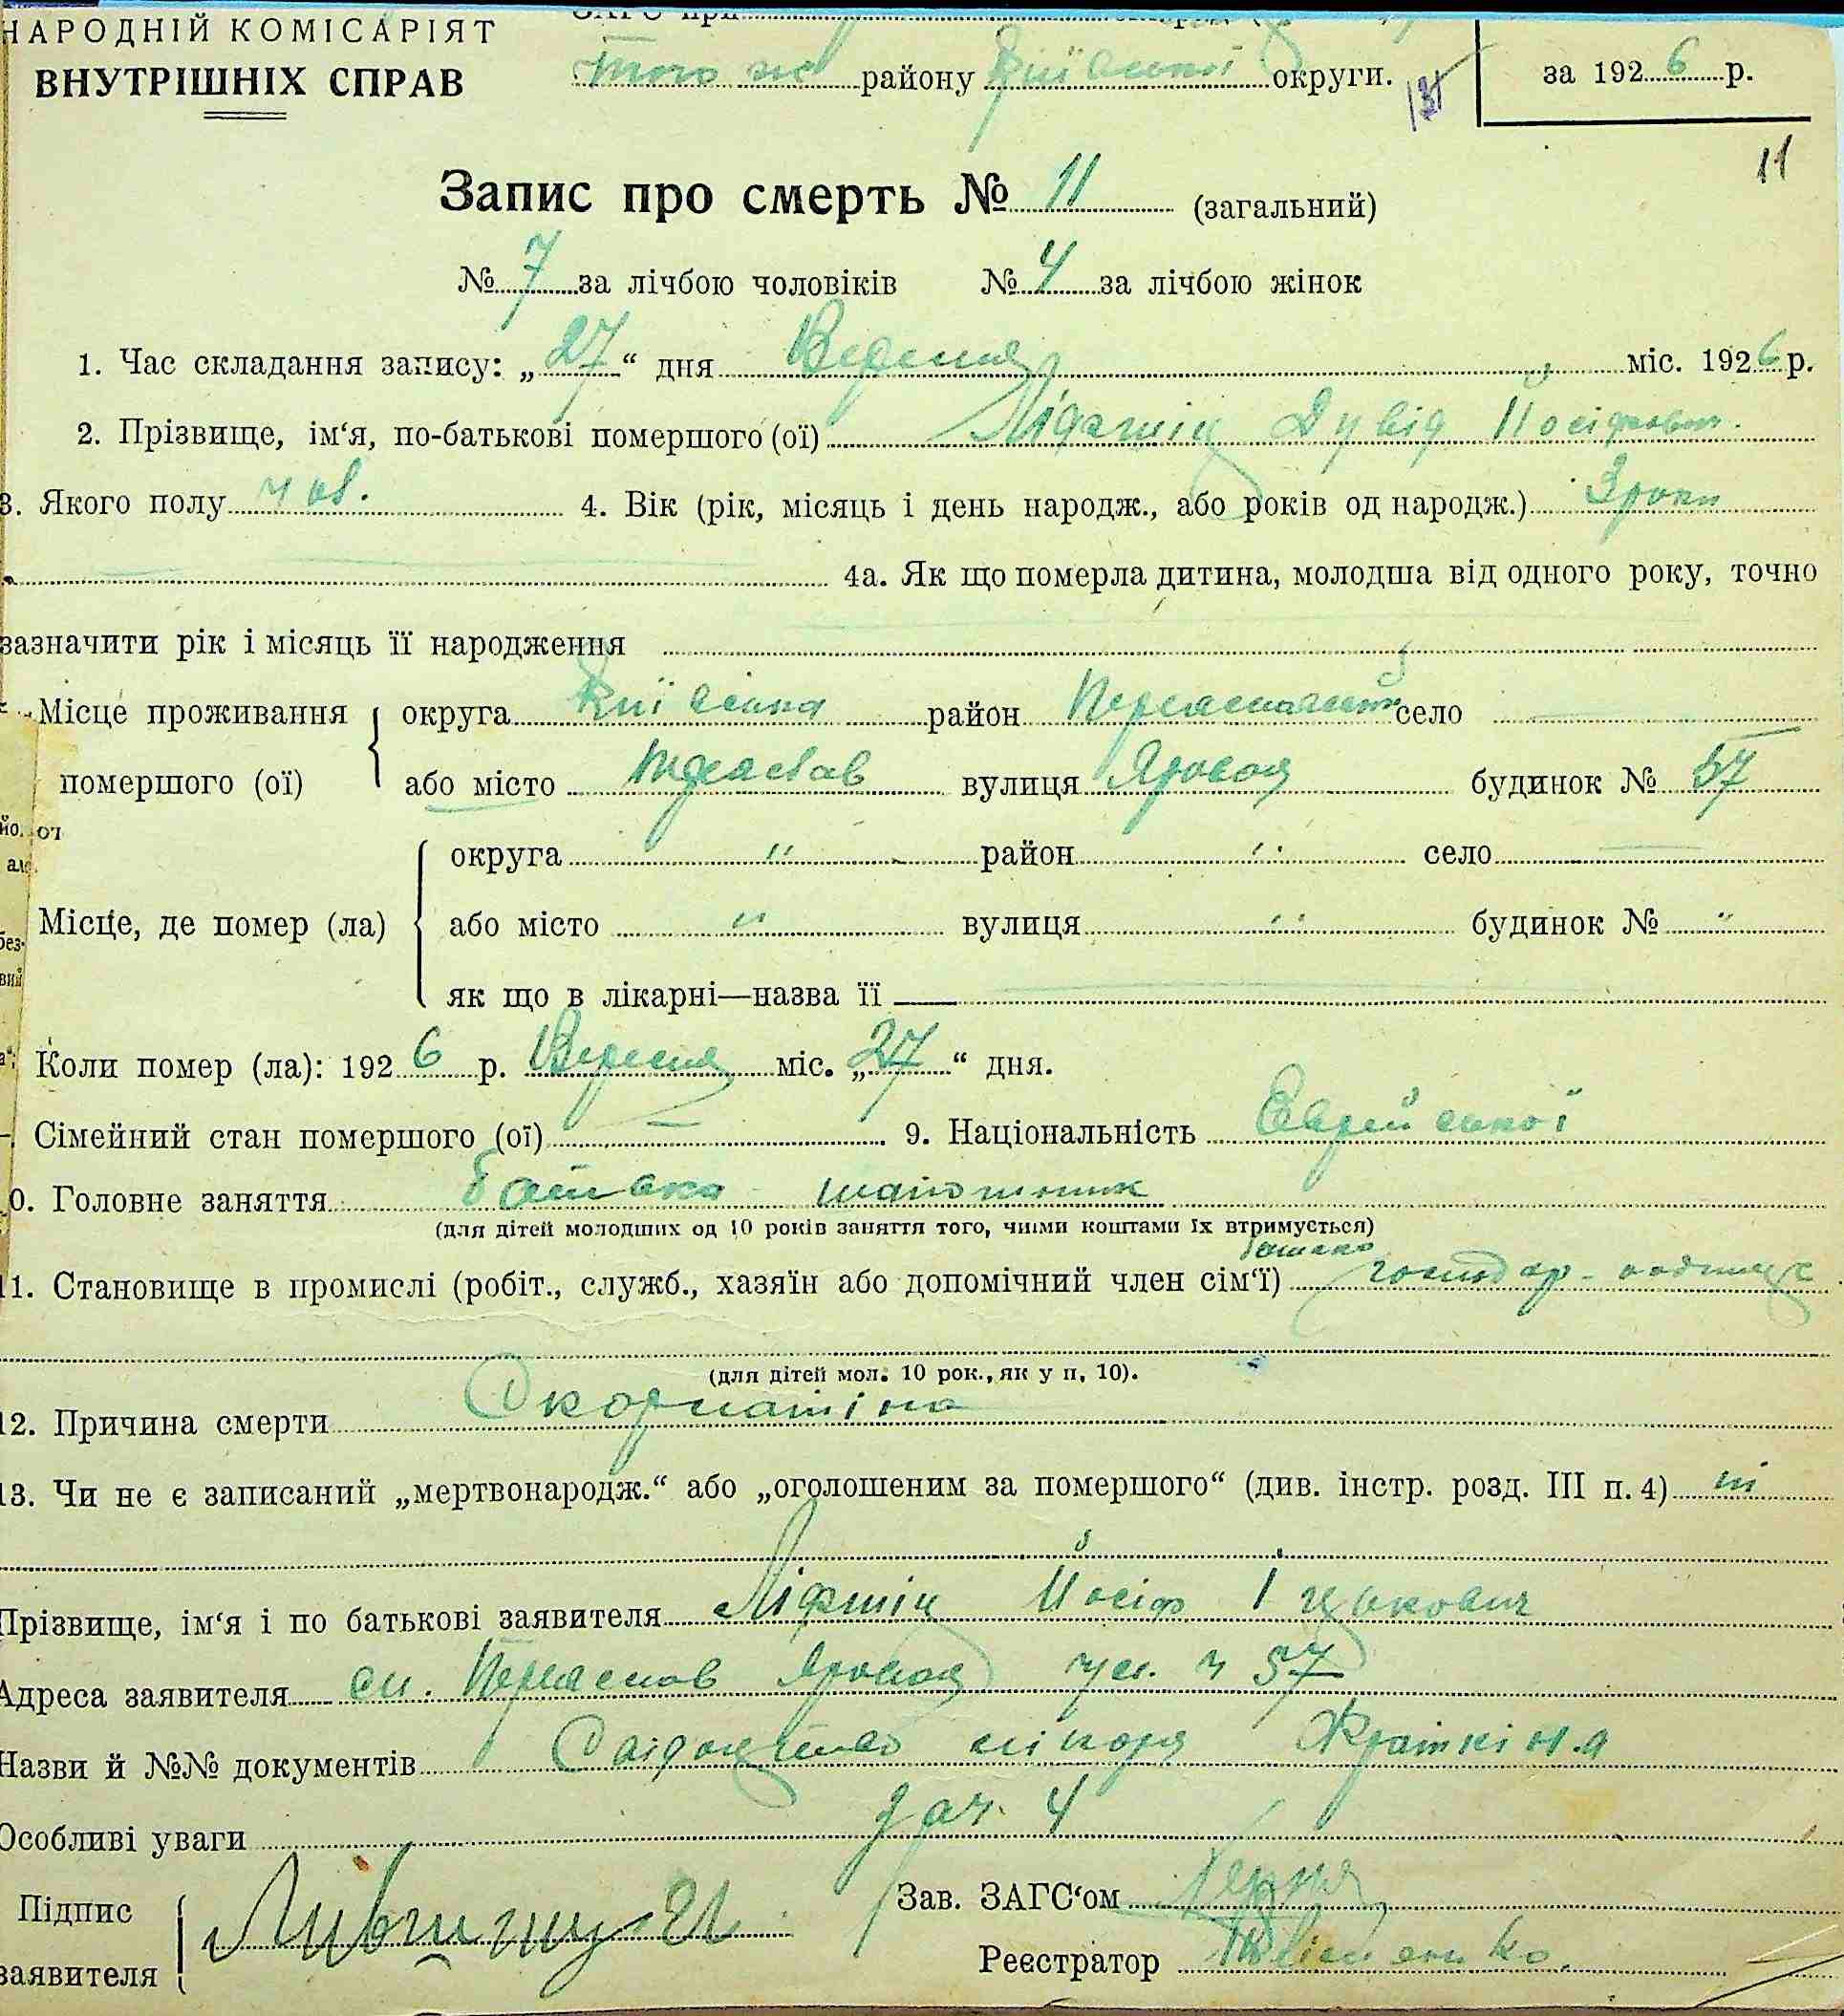 НАРОДНІЙ КОМІСАРІЯТ
ВНУТРІШНІХ СПРАВ
ЗАГС при
того ж району Київської округи.
за 1926 р.
11
Запис про смерть № 11 (загальний)
№ 7 за лічбою чоловіків № 4 за лічбою жінок
1. Час складання запису: „27“ дня Вересня міс. 1926 р.
2. Прізвище, ім‘я, по-батькові помершого (ої) Ліфшіц Дувід
3. Якого полу чол. 4. Вік (рік, місяць і день народж., або років од народж.) 3 роки
4а. Як що померла дитина, молодша від одного року, точно
зазначити рік і місяць її народження
Місце проживання округа Київська район село
помершого (ої) або місто вулиця Ярова будинок № 57
округа " район " село
Місце, де помер (ла) або місто " вулиця " будинок № "
як що в лікарні—назва її
Коли помер (ла): 1926 р. Вересня міс. „27“ дня.
Сімейний стан помершого (ої) — 9. Національність Єврейської
0. Головне заняття батька
(для дітей молодших од 10 років заняття того, чиїми коштами їх втримується)
батько
11. Становище в промислі (робіт., служб., хазяїн або допомічний член сім‘ї) господар
(для дітей мол. 10 рок., як у п. 10).
12. Причина смерти Скорлатіна
13. Чи не є записаний „мертвонародж.“ або „оголошеним за помершого“ (див. інстр. розд. III п. 4) ні
Прізвище, ім‘я і по батькові заявителя Ліфшіц Йосіф Іцькович
Адреса заявителя м. Переяслав Ярова ул. ч 57
Назви й №№ документів лікаря
Особливі уваги
Підпис
заявителя
Зав. ЗАГС‘ом
Реєстратор